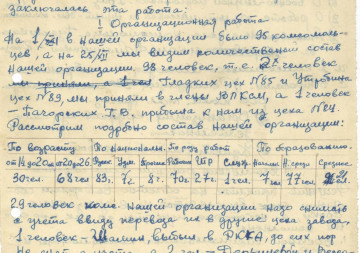 заключалась эта работа:
I Организационная работа
На 1/XII в нашей организации было 95 комсомоль-
цев, а на 25/VII мы видим количественный состав
нашей организации 98 человек, т.е. 2 человек
мы приняли, а 1 чел Гладких цех №85 и Утробина
цех №89, мы приняли в члены ВЛКСМ, а 1 человек
- Загорских Г.В. прибыла к нам из цеха №24.
Рассмотрим подробно состав нашей организации:
По возрасту По национальн. По роду работ По образованию.
от 14 до 20 от 20 до 26 Русс Удм. Рабочие ИТР Служ. Начальн Н. средн Среднее
30 чел. 68 чел 83 ч. 7 ч 8 ч. 70 ч 27 ч. 1 чел. 7 чел 77 чел
29 человек ком. нашей организации надо снимать
с учета ввиду перевода их в другие цеха завода,
1 человек - выбыл в РККА, до сих пор